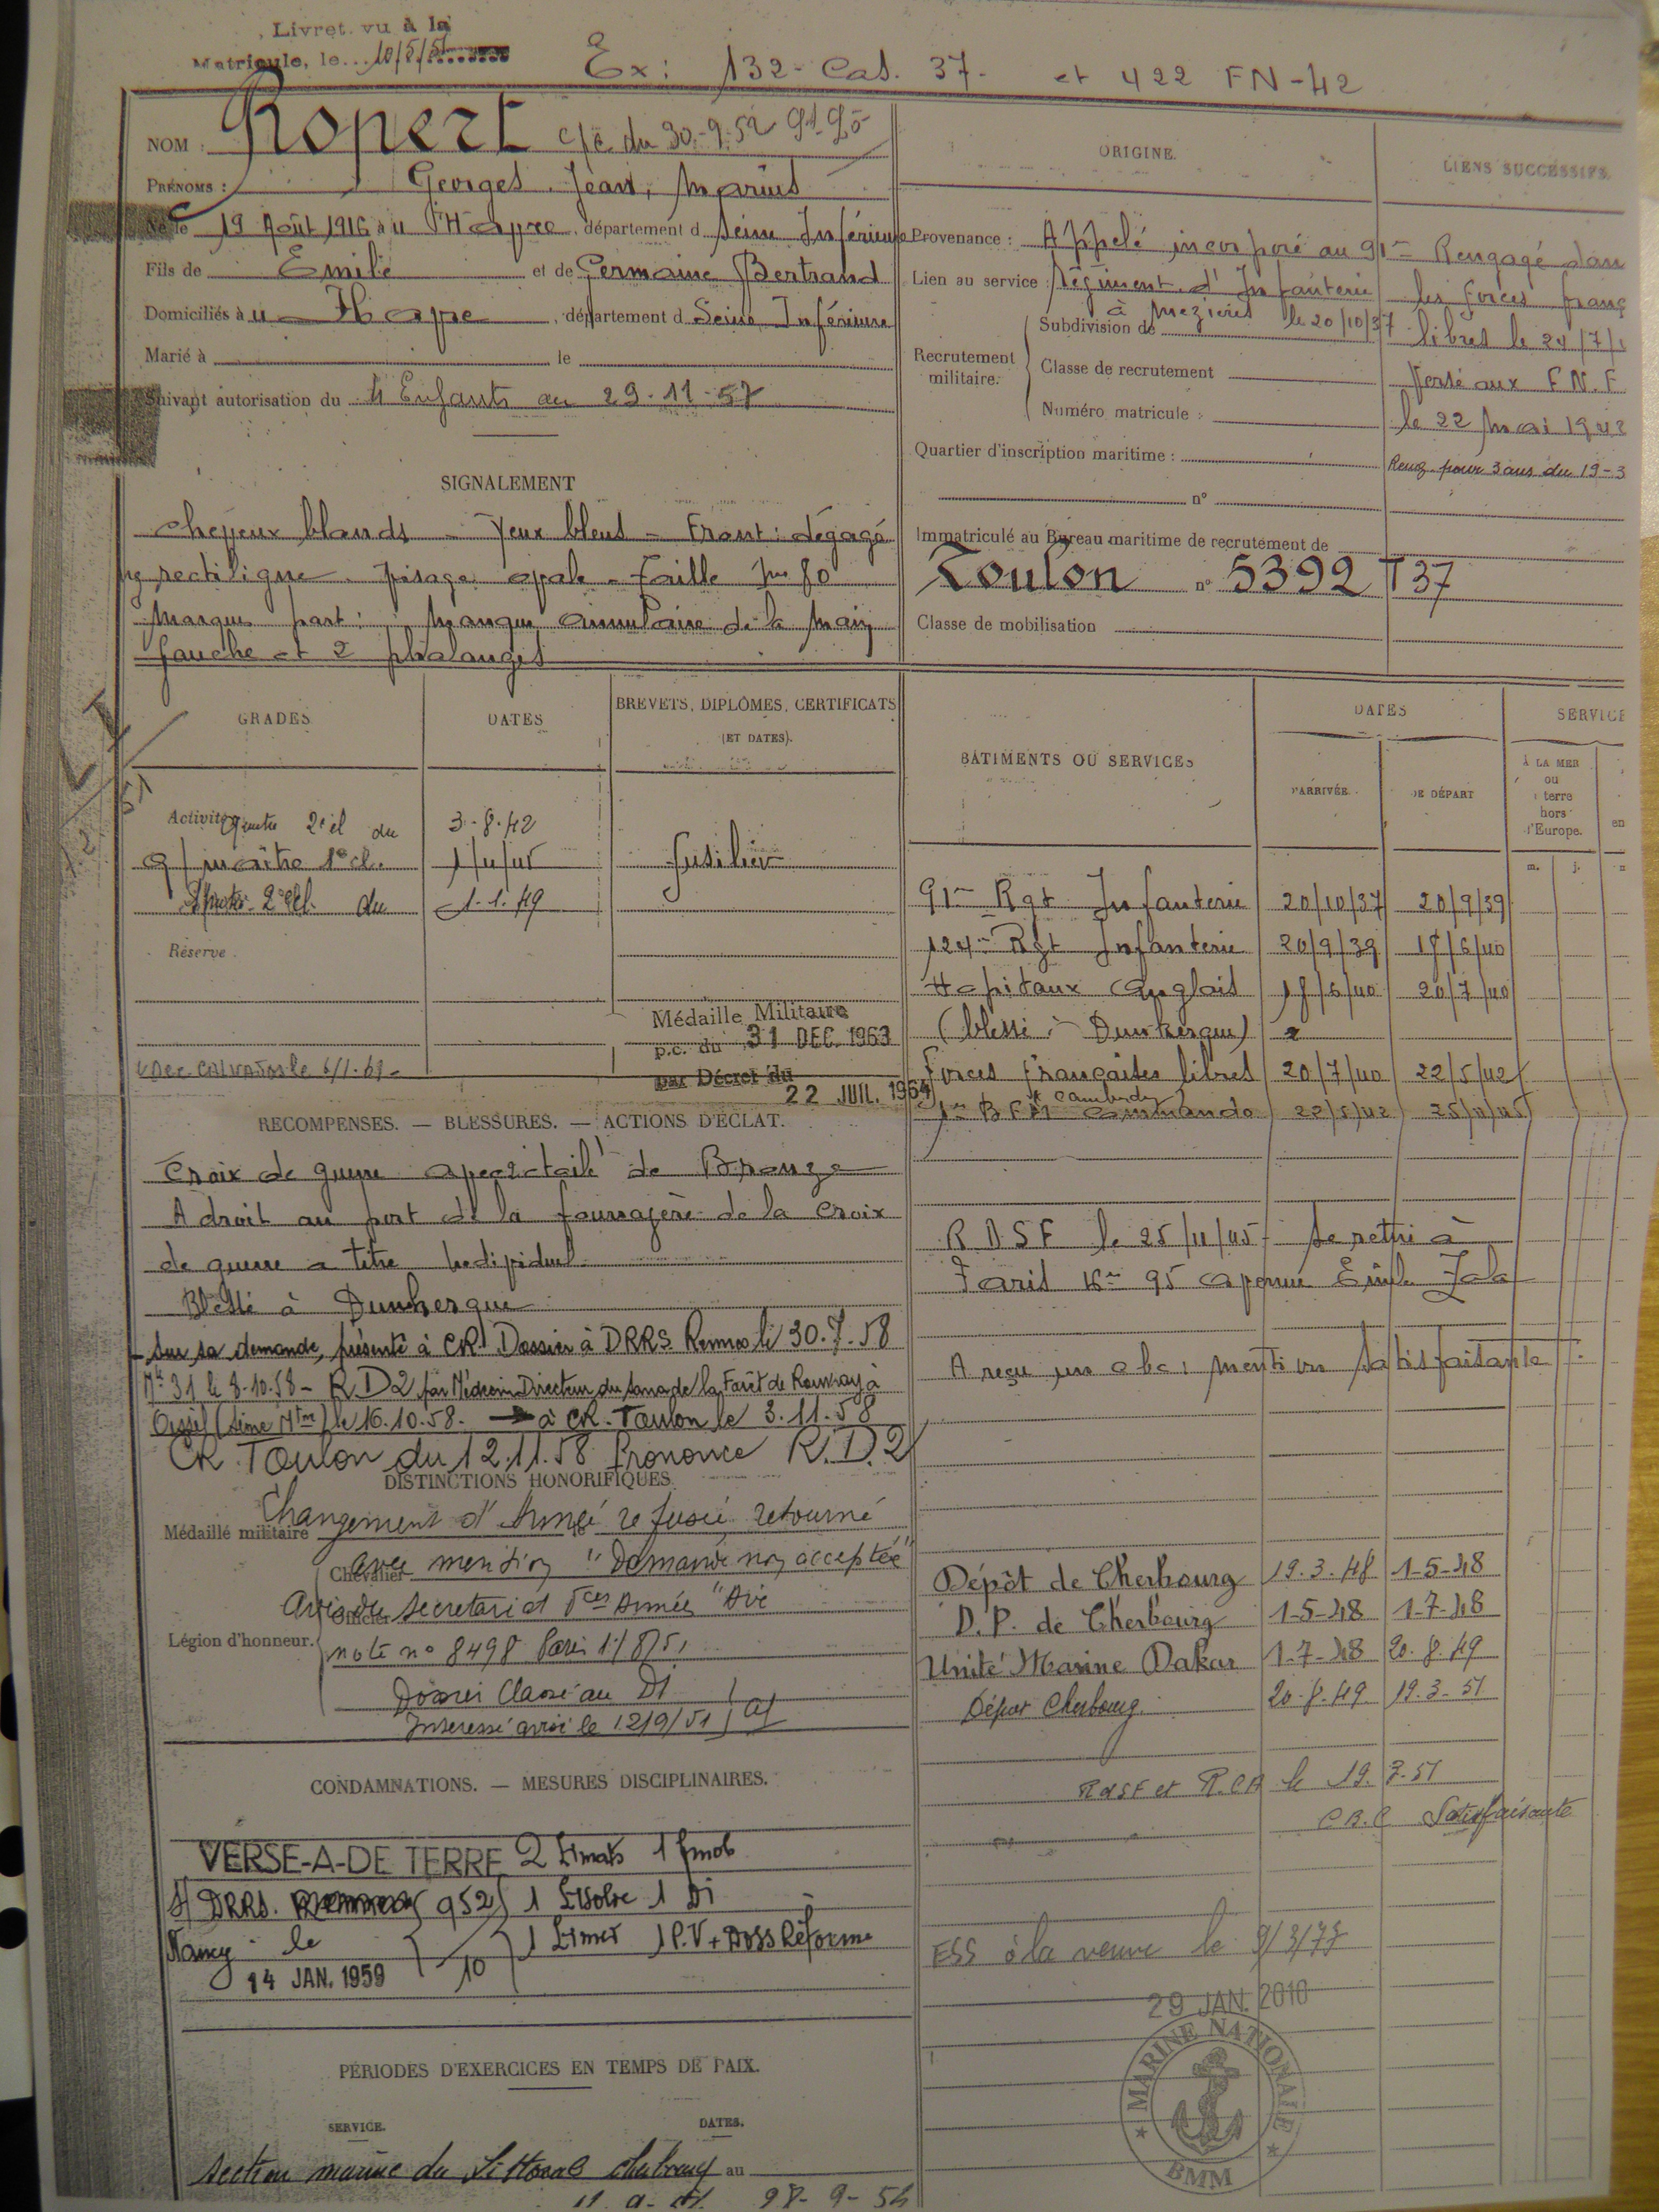 Livret vu à la
Matricule, le 10/5/51
Ex: 132- Cat. 37- et 422 FN-42
NOM : Ropert du 30-9-52
PRÉNOMS : Georges, Jean, Marius
Né le 19 Août 1916 à u Havre, département d Seine Inférieure
Fils de Emile et de Germaine Bertrand
Domiciliés à u Havre, département d Seine Inférieure
Marié à le
Suivant autorisation du 4 Enfants au 29-11-57
SIGNALEMENT
cheveux blonds - Yeux bleus - Front : dégagé
rectiligne. Visage ovale - Taille 1m 80
Marques part : Manque annulaire de la Main
Gauche et 2 phalanges
ORIGINE.
LIENS SUCCESSIFS.
Provenance : Appelé incorporé au 91me
Lien au service : Régiment d'Infanterie
à Mezières le 20/10/37
Recrutement militaire.
Subdivision de
Classe de recrutement
Numéro matricule :
Quartier d'inscription maritime :
n°
Rengagé dan
les Forces franç
libres le 24/7/
Versé aux F.N.F
le 22 Mai 1942
Reng. pour 3 ans du 19-3
Immatriculé au Bureau maritime de recrutement de
Toulon n° 5392 T 37
Classe de mobilisation
GRADES
DATES
BREVETS, DIPLÔMES, CERTIFICATS
(ET DATES).
Activité
2e cl du 3-8-42
q/ maître 1e cl. 1/11/45
2e cl. du 1.1.49
Fusilier
Réserve.
Médaille Militaire
p.c. du 31 DEC. 1963
par Décret du
22 JUIL. 1964
CALVADOS le 6/1.69-
BÂTIMENTS OU SERVICES
DATES
D'ARRIVÉE.
DE DÉPART
SERVICE
À LA MER
ou
à terre
hors
d'Europe.
en
m. j.
91me Rgt Infanterie 20/10/37 20/9/39
124me Rgt Infanterie 20/9/39 18/6/40
Hopitaux Anglais 18/6/40 20/7/40
(blessé à Dunkerque)
Forces Françaises libres 20/7/40 22/5/42
1er B F M Commando 22/5/42 25/11/45
RECOMPENSES. — BLESSURES. — ACTIONS D'ÉCLAT.
Croix de guerre avec étoile de Bronze
A droit au port de la fourragère de la Croix
de guerre a titre Individuel
Blessé à Dunkerque
Sur sa demande, présenté à CR. Dossier à DRRS Rennes le 30.7.58
31 le 8.10.58 - R.D2 par Médecin Directeur du sana de la Forêt de Rouvray à
Oissel (Seine Mtme) le 16.10.58. → à CR. Toulon le 3.11.58
CR. Toulon du 12.11.58 Prononce R.D.2
R D S F le 25/11/45 - Se retire à
Paris 16me 95 avenue Emile Zola
A reçu un c b c : mention Satisfaisante
DISTINCTIONS HONORIFIQUES.
Changement d'Armée refusé retourné
Médaille militaire
avec mention "Demande non acceptée"
Légion d'honneur.
Chevalier
Officier
Secretariat Fces Armées
note n° 8498 Paris
Dossier Classé au DI
Interessé avisé le 12/9/51
Dépôt de Cherbourg 19.3.48 1-5-48
D. P. de Cherbourg 1-5-48 1-7-48
Unité Marine Dakar 1-7-48 20.8.49
Dépôt Cherbourg. 20.8.49 19.3-51
RdSF et R.CA le 19.3.51
C.B.C Satisfaisante
CONDAMNATIONS. — MESURES DISCIPLINAIRES.
VERSE-A-DE TERRE 2 1 fmob
DRRS. (952) 1 1 Di
Nancy le 1 1 P.V + Doss Réforme
14 JAN. 1959 10
ESS à la veuve le 9/3/77
29 JAN. 2010
★ MARINE NATIONALE ★
BMM
PÉRIODES D'EXERCICES EN TEMPS DE PAIX.
SERVICE.
DATES.
Section marine du Littoral Cherbourg au
28-9-54